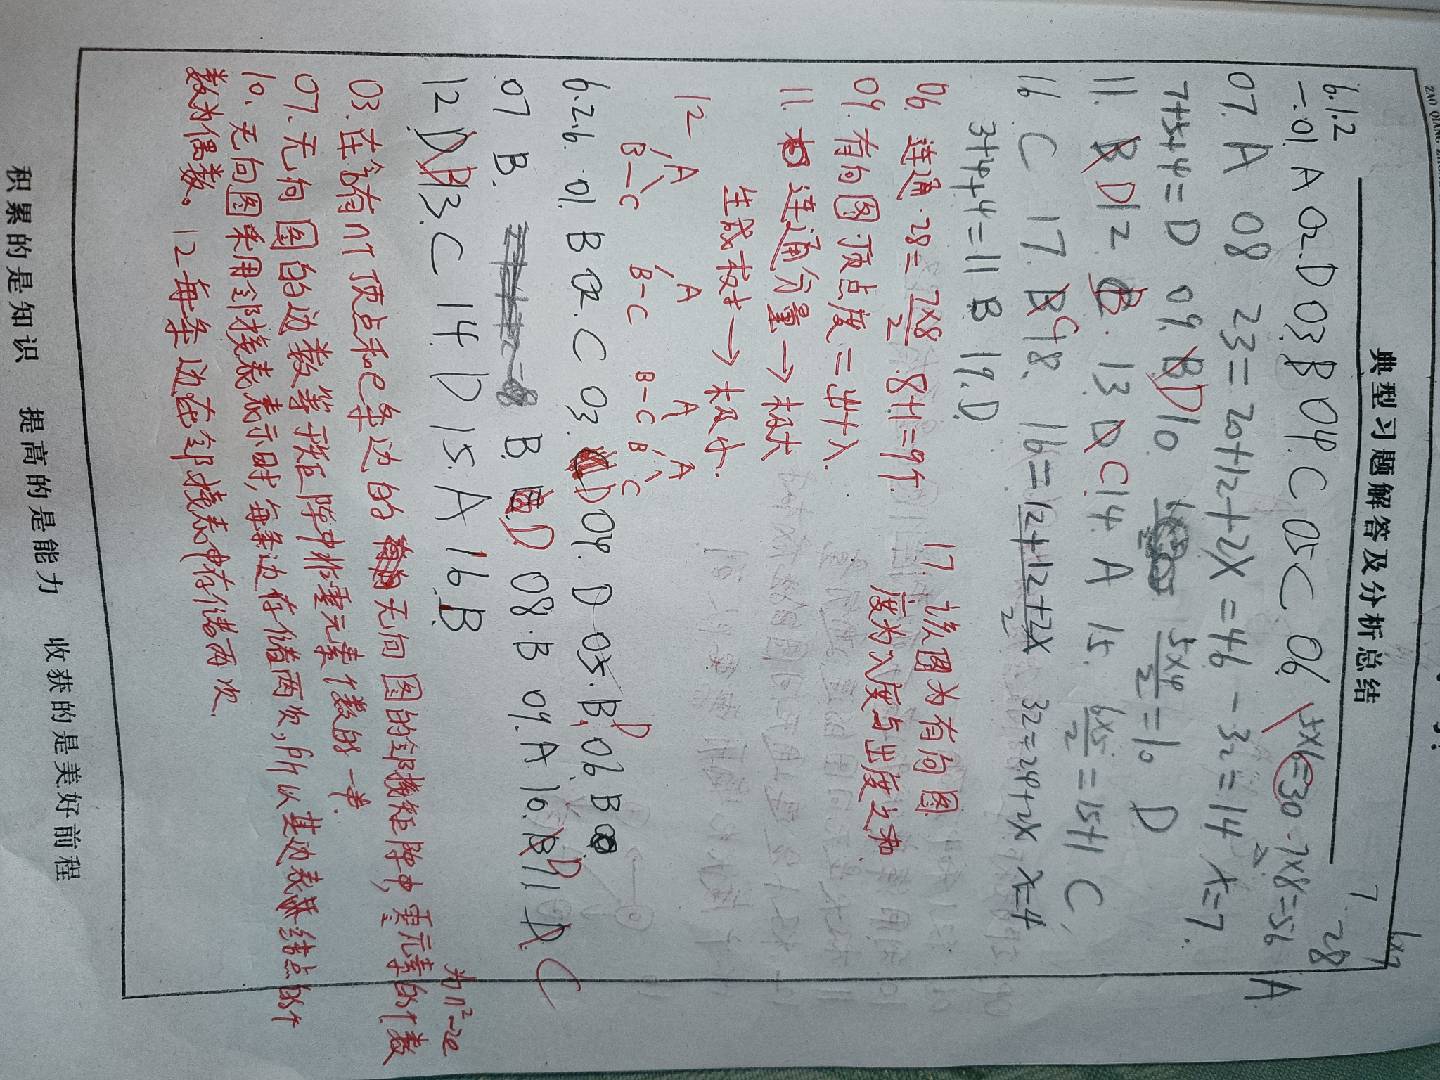 典型习题解答及分析总结
6×7
7. 28
6.1.2
一.01. A 02.D 03.B 04.C 05C 06. 5×6=30 7×8=56 A
07. A 08 23=20+12+2X=46-32=14 x=7.
7+5+4=D 09. B D 10. 5×4/2=10 D
11. B D 12 B. 13. D C 14. A 15. 6×5/2=15+1 C
16 C 17. B C 18. 16=12+12+2X/2 32=24+2X x=4
3+4+4=11 B 19.D.
06. 连通.28=7×8/2 .8+1=9个.
17. 该图为有向图
度为入度与出度之和.
09. 有向图.顶点度=出+入.
11. 连通分量→极大
生成树→极小.
12 A A A A
B-C B-C B-C B C
6.2.6 01. B 02. C 03. D 04. D 05. B D 06. B
07 B. B. D 08.B 09.A 10.B D 11. D C
12 D B 13.C 14.D 15.A 16.B
为n²-2e
03.在含有n个顶点和e条边的无向图的邻接矩阵中,零元素的个数
07.无向图的边数等于矩阵中非零元素个数的一半.
10.无向图采用邻接表表示时,每条边存储两次,所以其边表结点的个
数为偶数。 12每条边在邻接表中存储两次.
积累的是知识 提高的是能力 收获的是美好前程